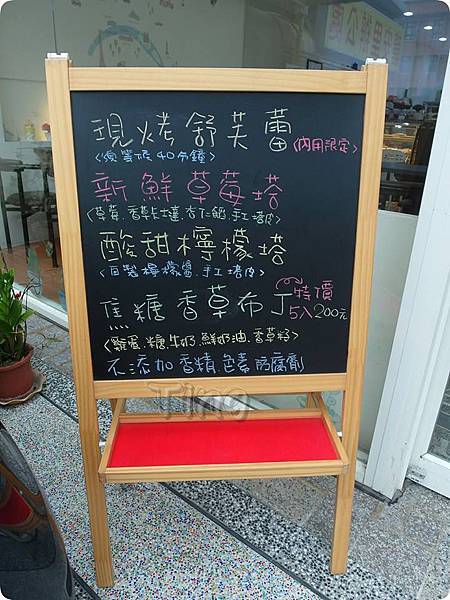 現烤舒芙蕾<內用限定>
<須等候40分鐘>
新鮮草莓塔
<草莓.香草卡士達.杏仁餡.手工塔皮>
酸甜檸檬塔
<自製檸檬醬.手工塔皮>
焦糖香草布丁 特價5入200元
<雞蛋.糖.牛奶.鮮奶油.香草籽>
不添加香精.色素.防腐劑
Ting